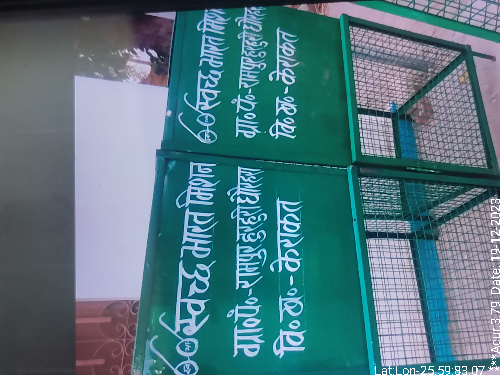 स्वच्छ भारत मिशन
ग्रा०पं०-रामपुर हरहरी धौरहरा
वि०ख०-केराकत
स्वच्छ भारत मिशन
ग्रा०पं०-रामपुर हरहरी धौरहरा
वि०ख०-केराकत
Lat:Lon-25.59:83.07 ***
Agur:3.79 Date: 19-12-2023